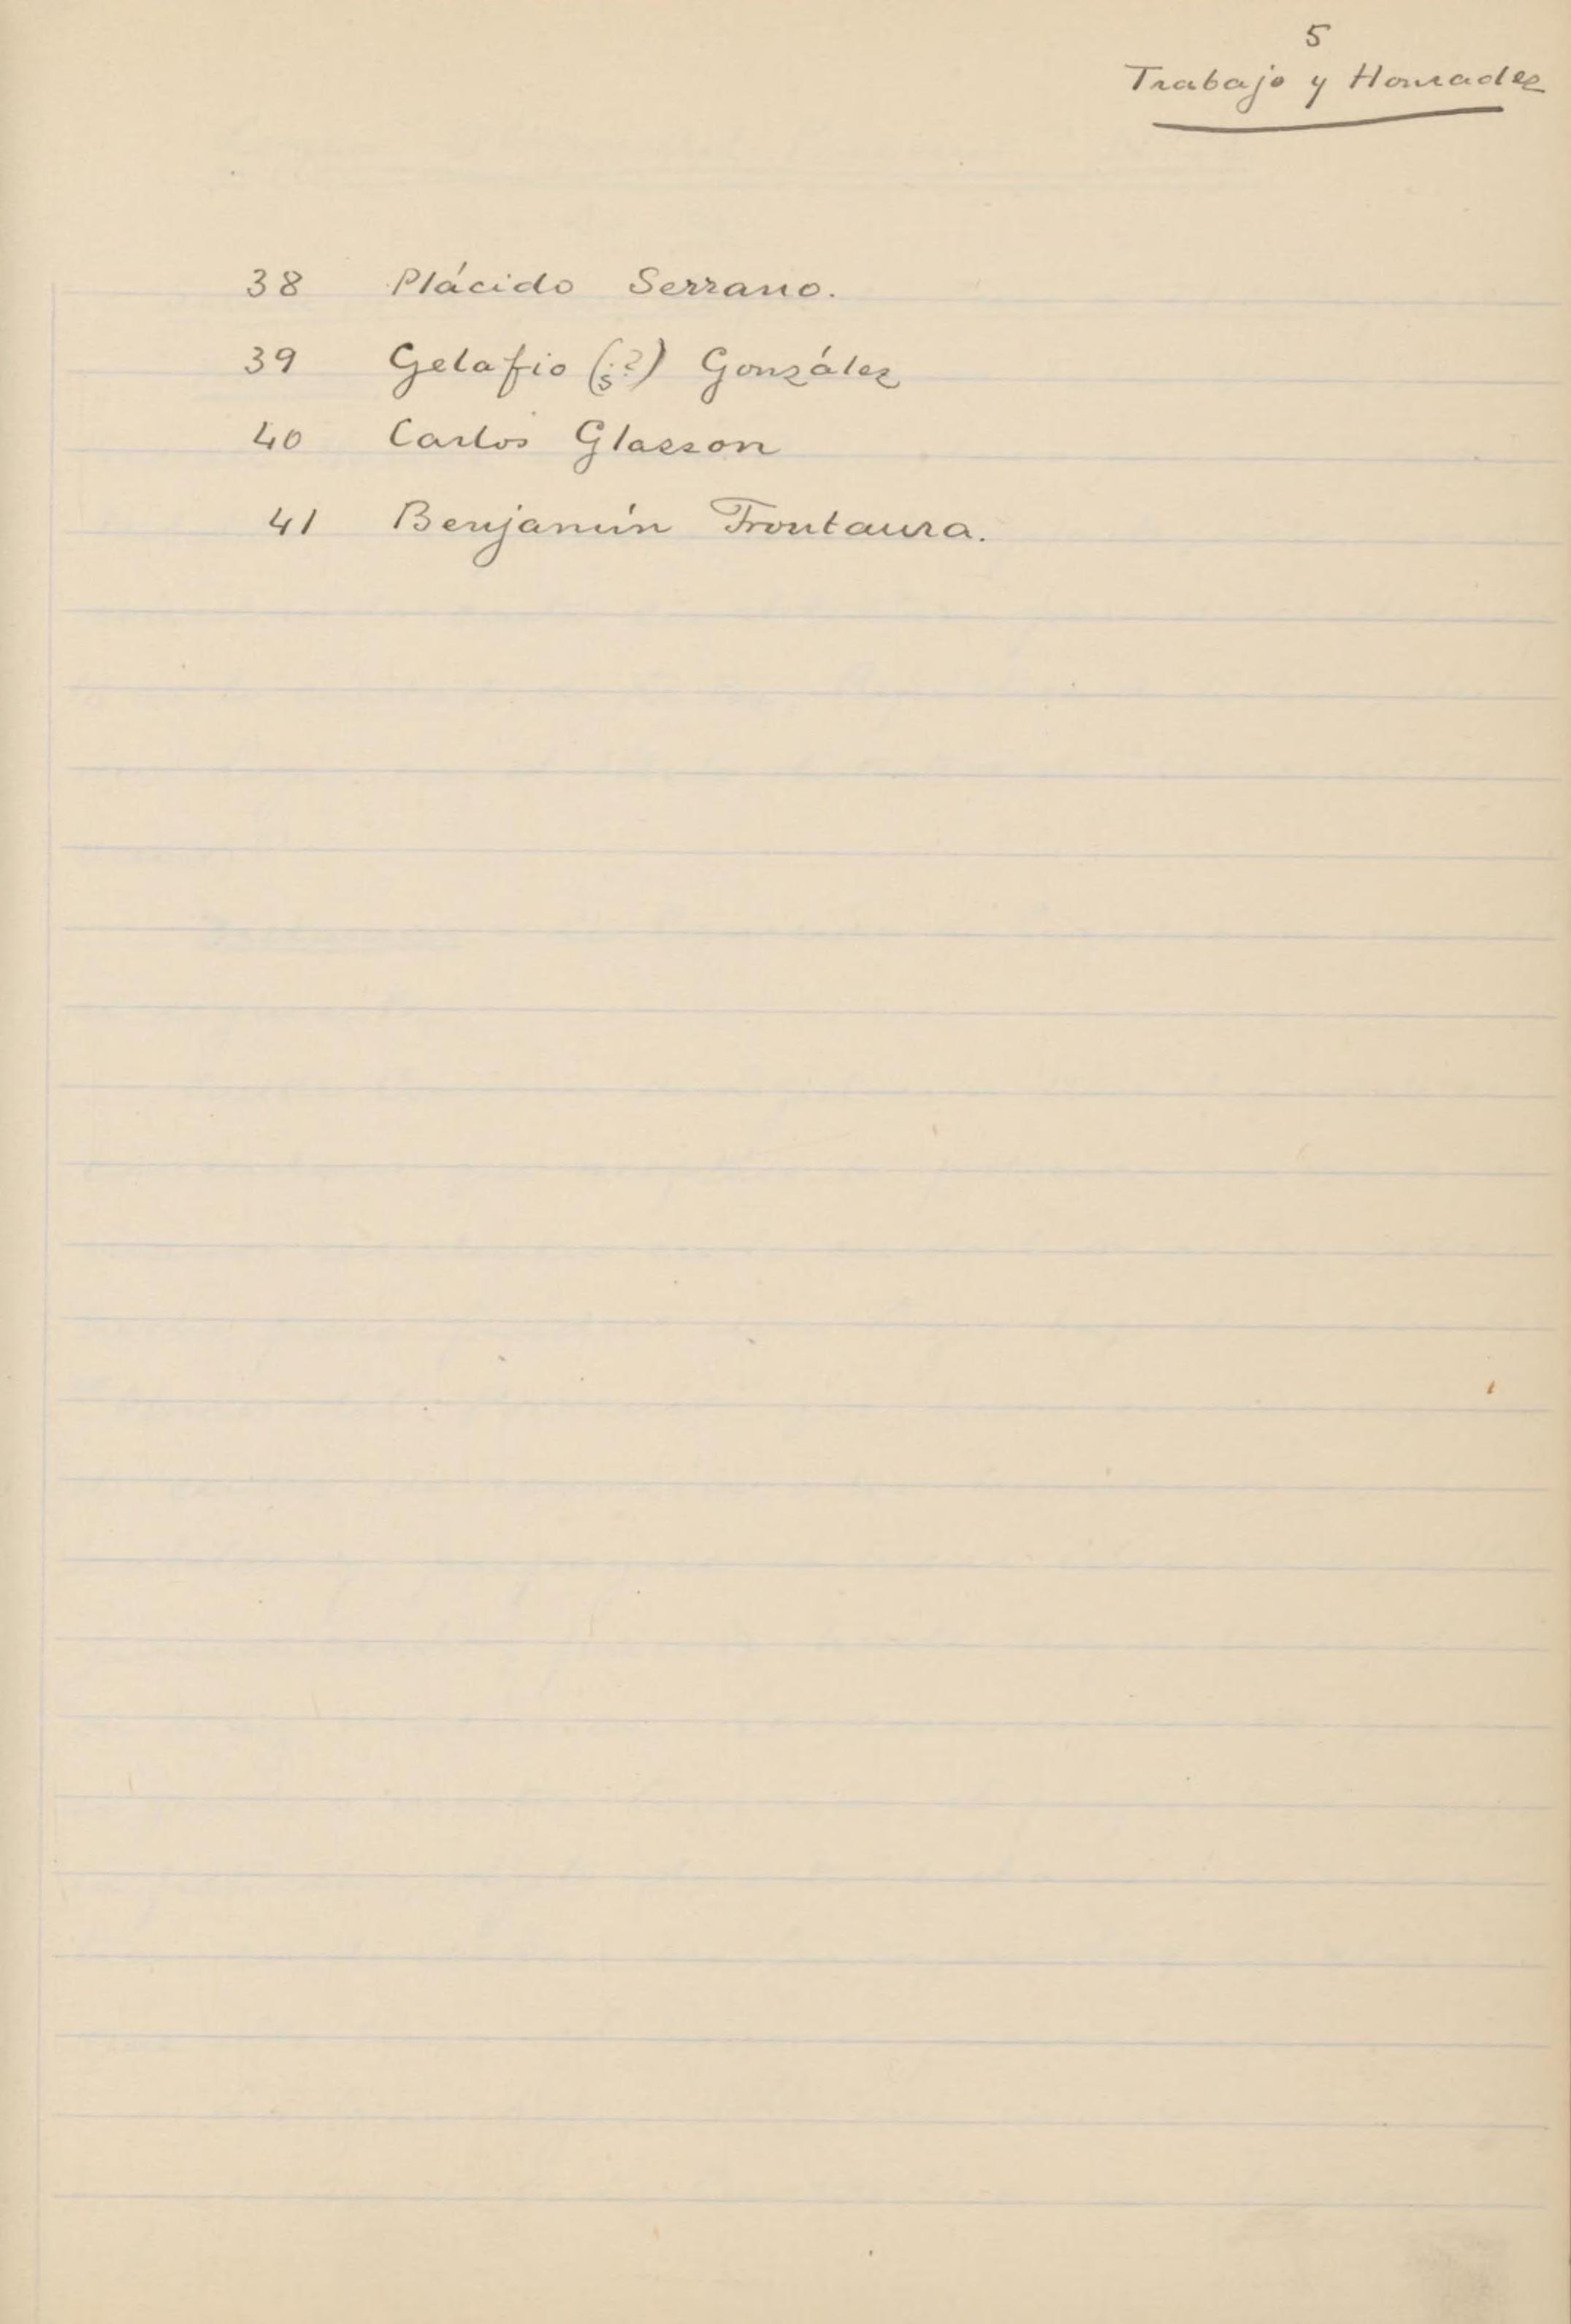 5
Trabajo y Honradez
38 Plácido Serrano.
39 Gelafio (¿?) González
40 Carlos Glasson
41 Benjamín Frontaura.